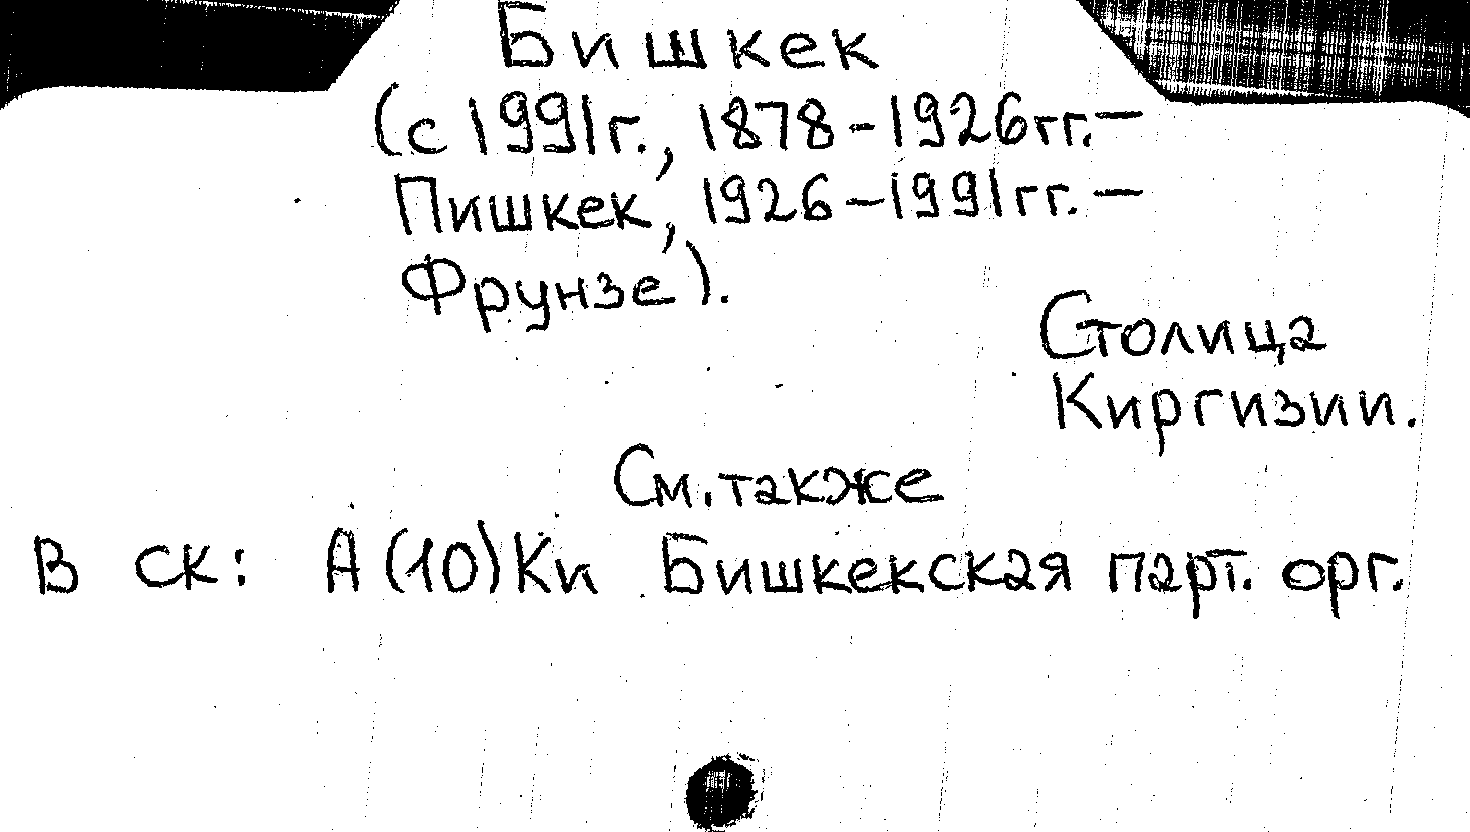 Бишкек
(с 1991г., 1878-1926гг.—
Пишкек, 1926-1991гг.—
Фрунзе).
Столица
Киргизии.
См. также
В ск: А(10)Ки Бишкекская парт. орг.